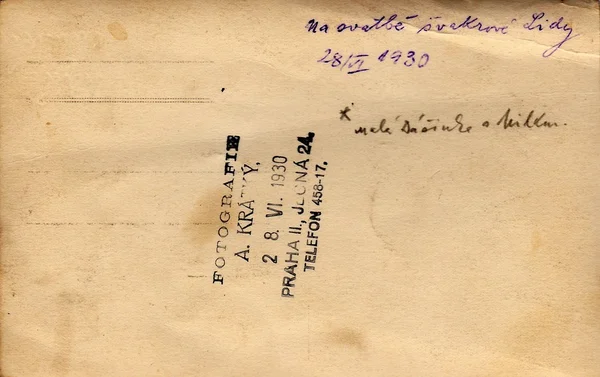 Na svatbě švakrové Lidy
28/VI 1930
* malá Dášinka s
FOTOGRAFIE
A. KRÁTKÝ,
2 8. VI. 1930
PRAHA II., JEČNÁ 24.
TELEFON 458-17.